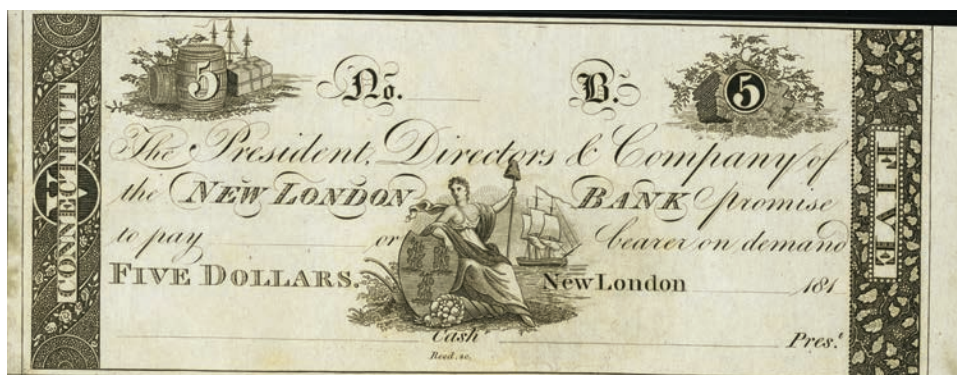 CONNECTICUT
5
5
No.
B.
5
The President, Directors & Company of
the NEW LONDON BANK promise
to pay or bearer on demand
FIVE DOLLARS. New London 181
Cashr Prest
Reed. sc.
FIVE